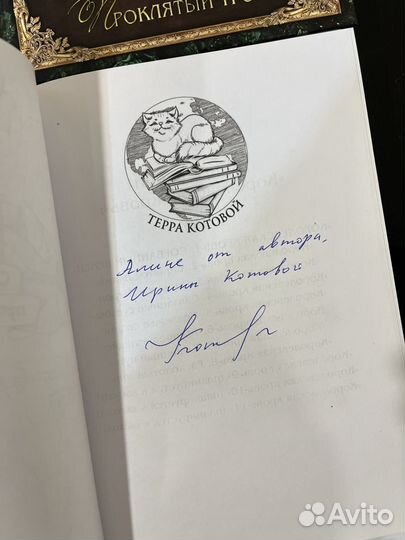 Проклятый
ТЕРРА КОТОВОЙ
Алине от автора,
Ирины Котовой
Avito